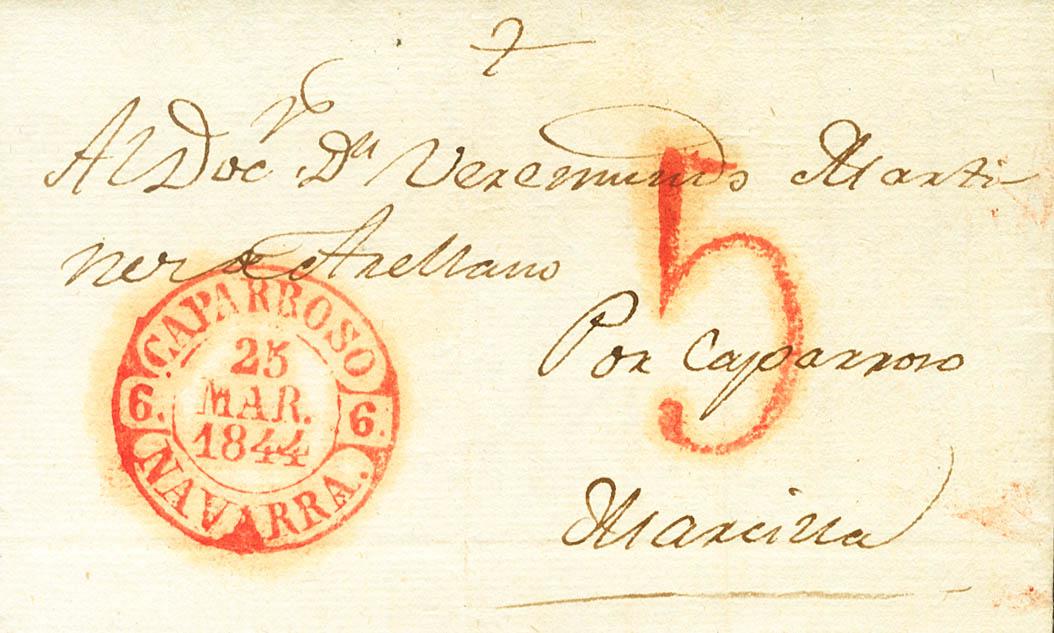 Al Doc.r Dn Veremundo Marti
nez de Arellano
5
Por Caparroso
CAPARROSO
25
MAR.
1844
6. 6.
NAVARRA.
Marcilla